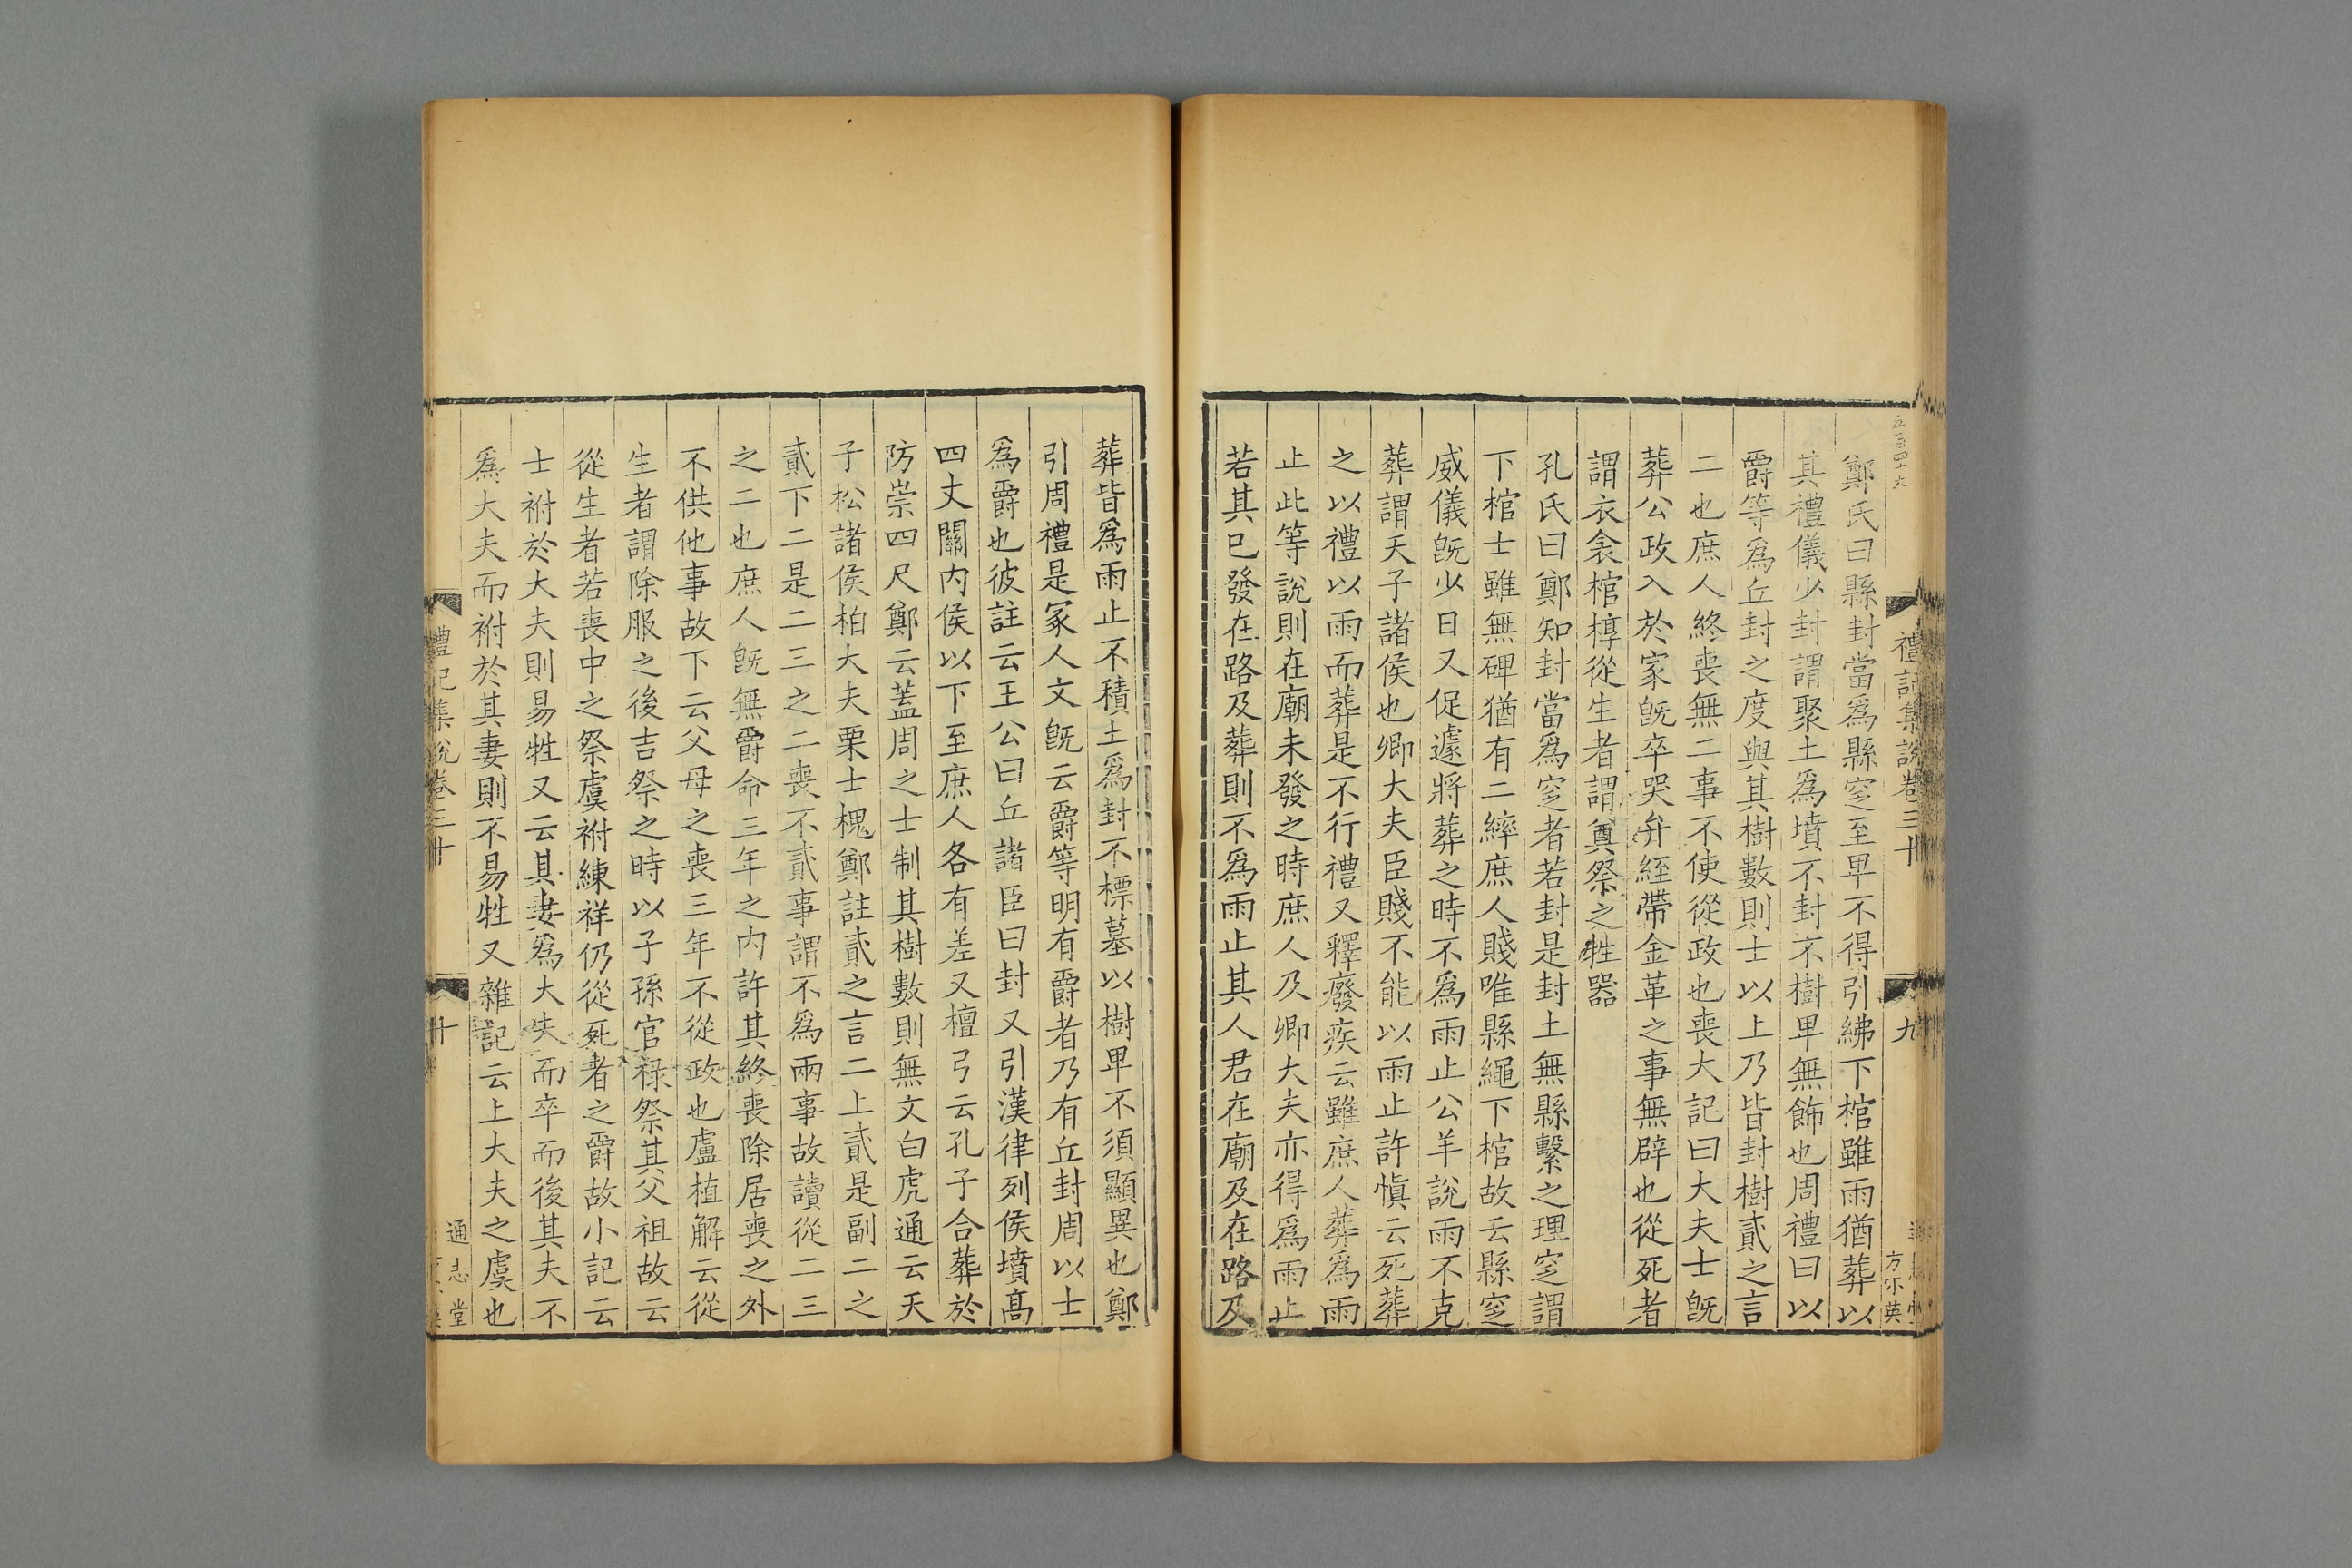 五百四十九
禮記集說卷三十
九
方尔英
鄭氏曰縣封當爲縣窆至卑不得引紼下棺雖雨猶葬以
其禮儀少封謂聚土爲墳不封不樹卑無飾也周禮曰以
爵等爲丘封之度與其樹數則士以上乃皆封樹貳之言
二也庶人終喪無二事不使從政也喪大記曰大夫士旣
葬公政入於家旣卒哭弁絰帶金革之事無辟也從死者
謂衣衾棺椁從生者謂奠祭之牲器
孔氏曰鄭知封當爲窆者若封是封土無縣繫之理窆謂
下棺士雖無碑猶有二繂庶人賤唯縣繩下棺故云縣窆
威儀旣少日又促遽將葬之時不爲雨止公羊說雨不克
葬謂天子諸侯也卿大夫臣賤不能以雨止許愼云死葬
之以禮以雨而葬是不行禮又釋廢疾云雖庶人葬爲雨
止此等說則在廟未發之時庶人及卿大夫亦得爲雨止
若其已發在路及葬則不爲雨止其人君在廟及在路及
葬皆爲雨止不積土爲封不標墓以樹卑不須顯異也鄭
引周禮是冢人文旣云爵等明有爵者乃有丘封周以士
爲爵也彼註云王公曰丘諸臣曰封又引漢律列侯墳高
四丈關內侯以下至庶人各有差又檀弓云孔子合葬於
防崇四尺鄭云蓋周之士制其樹數則無文白虎通云天
子松諸侯柏大夫栗士槐鄭註貳之言二上貳是副二之
貳下二是二三之二喪不貳事謂不爲兩事故讀從二三
之二也庶人旣無爵命三年之內許其終喪除居喪之外
不供他事故下云父母之喪三年不從政也盧植解云從
生者謂除服之後吉祭之時以子孫官祿祭其父祖故云
從生者若喪中之祭虞祔練祥仍從死者之爵故小記云
士祔於大夫則易牲又云其妻爲大夫而卒而後其夫不
爲大夫而祔於其妻則不易牲又雜記云上大夫之虞也
禮記集說卷三十
十
通志堂